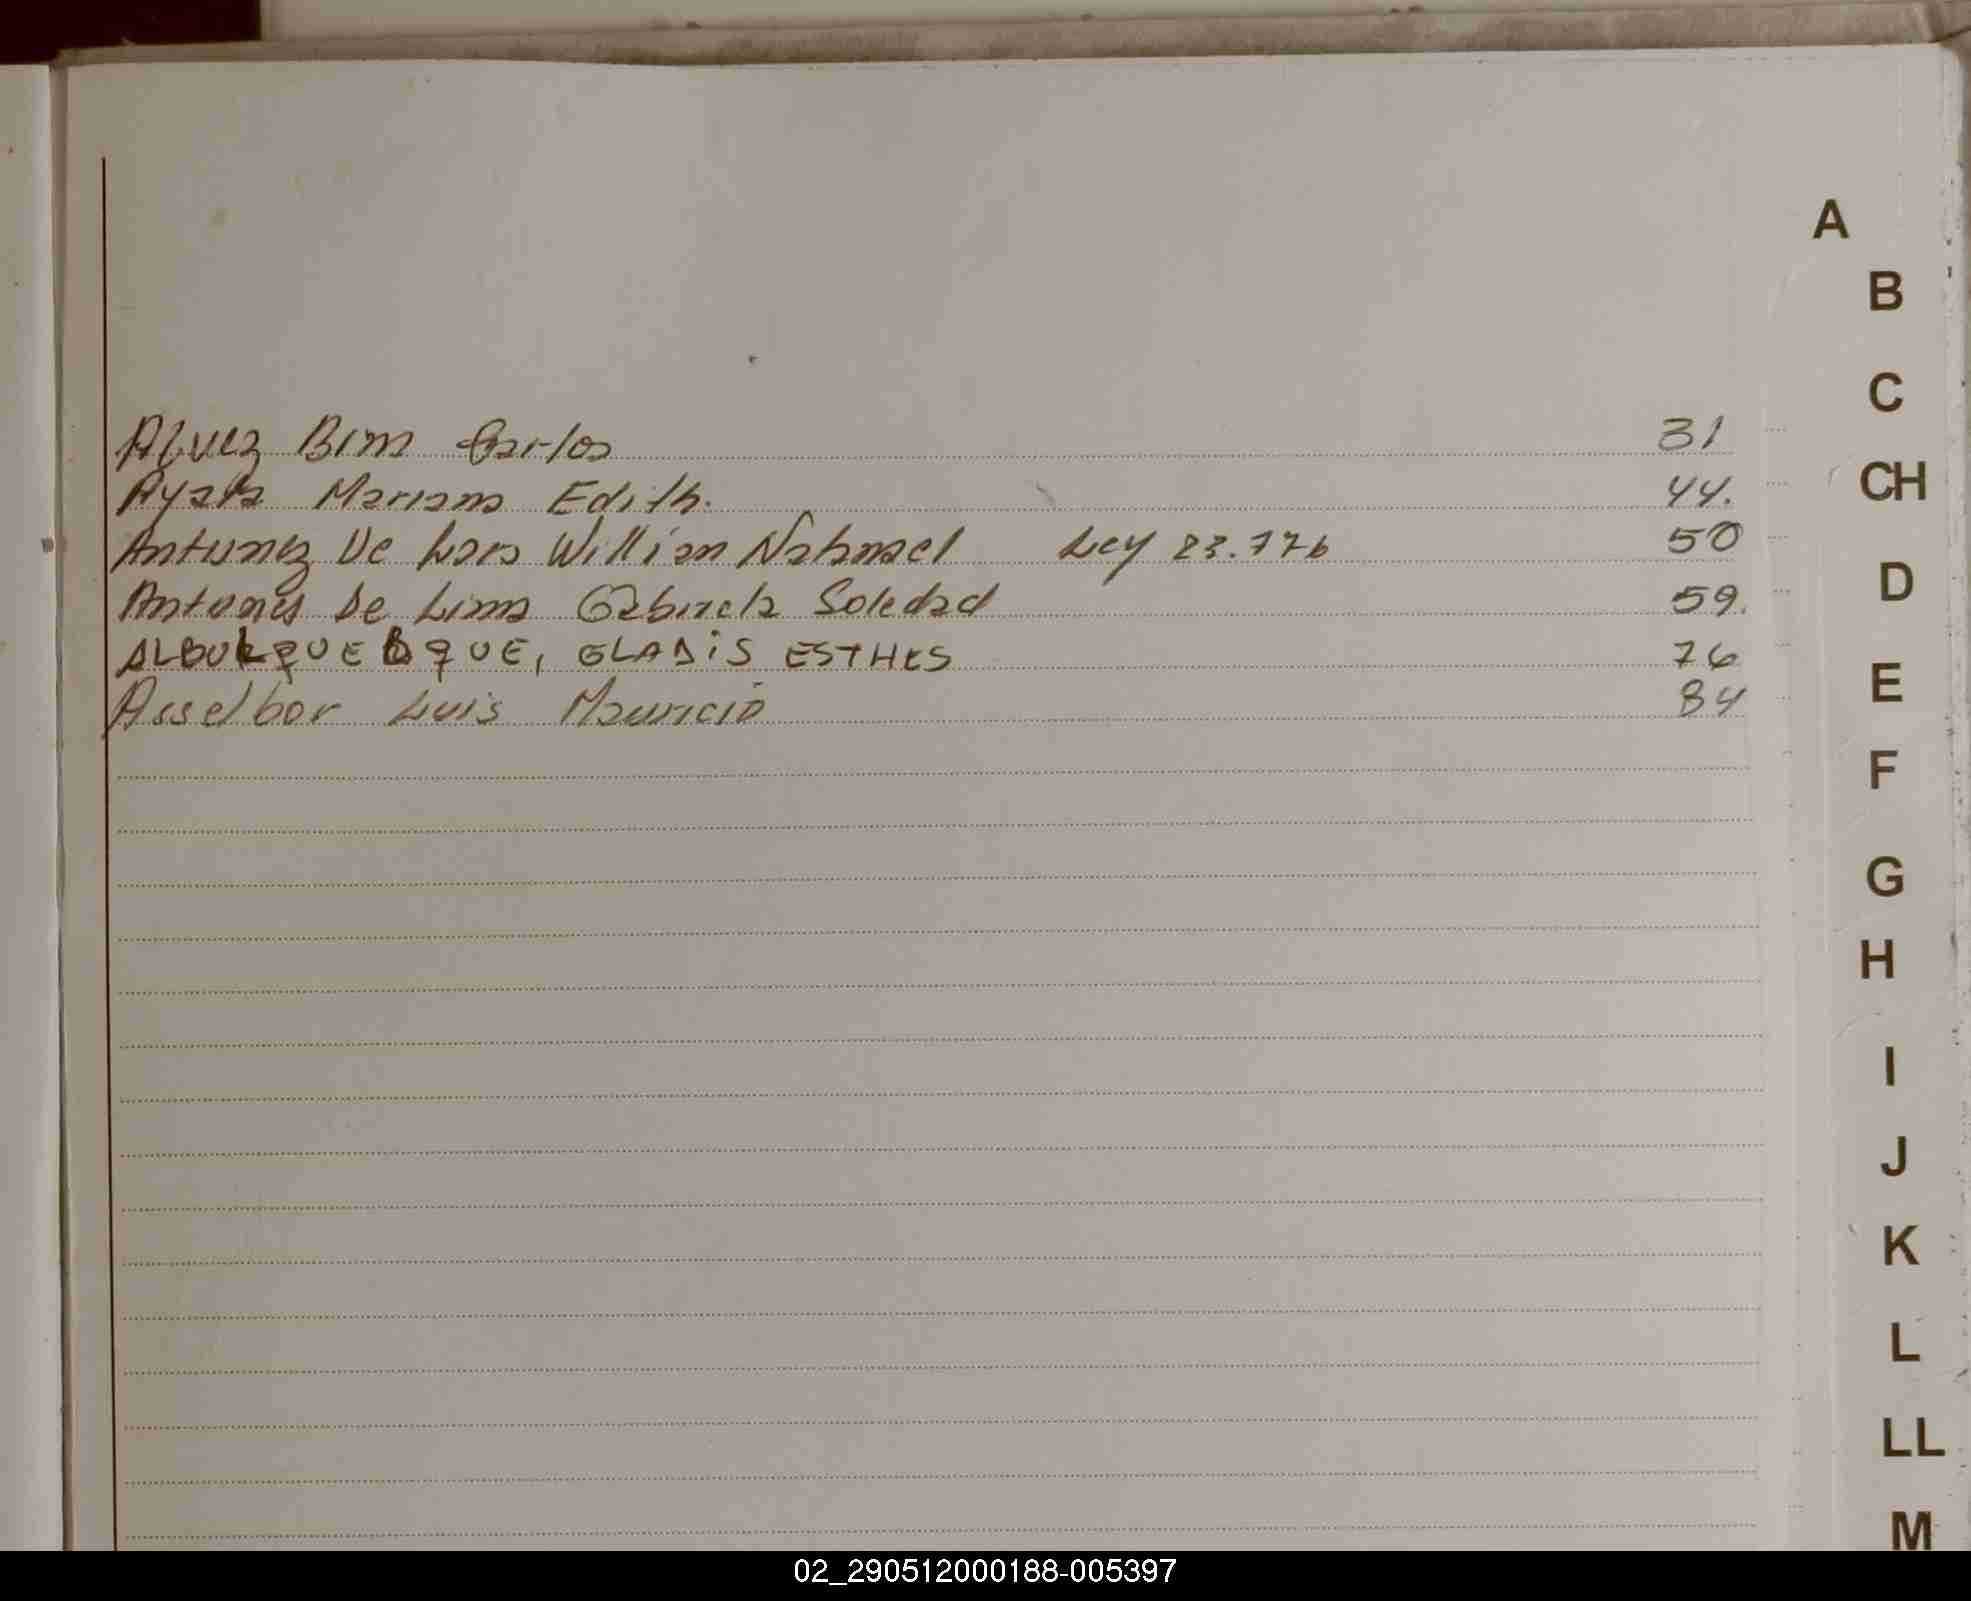 Alvez Bim Carlos 31
Ayala Mariano Edith. 44.
Antunez De Willian Natanael Ley 23.776 50
Antunes De Lima Gabriela Soledad 59.
ALBURQUERQUE, GLADiS ESTHES 76
Asselbor Luis Mauricio 84
A
B
C
CH
D
E
F
G
H
I
J
K
L
LL
M
02_290512000188-005397